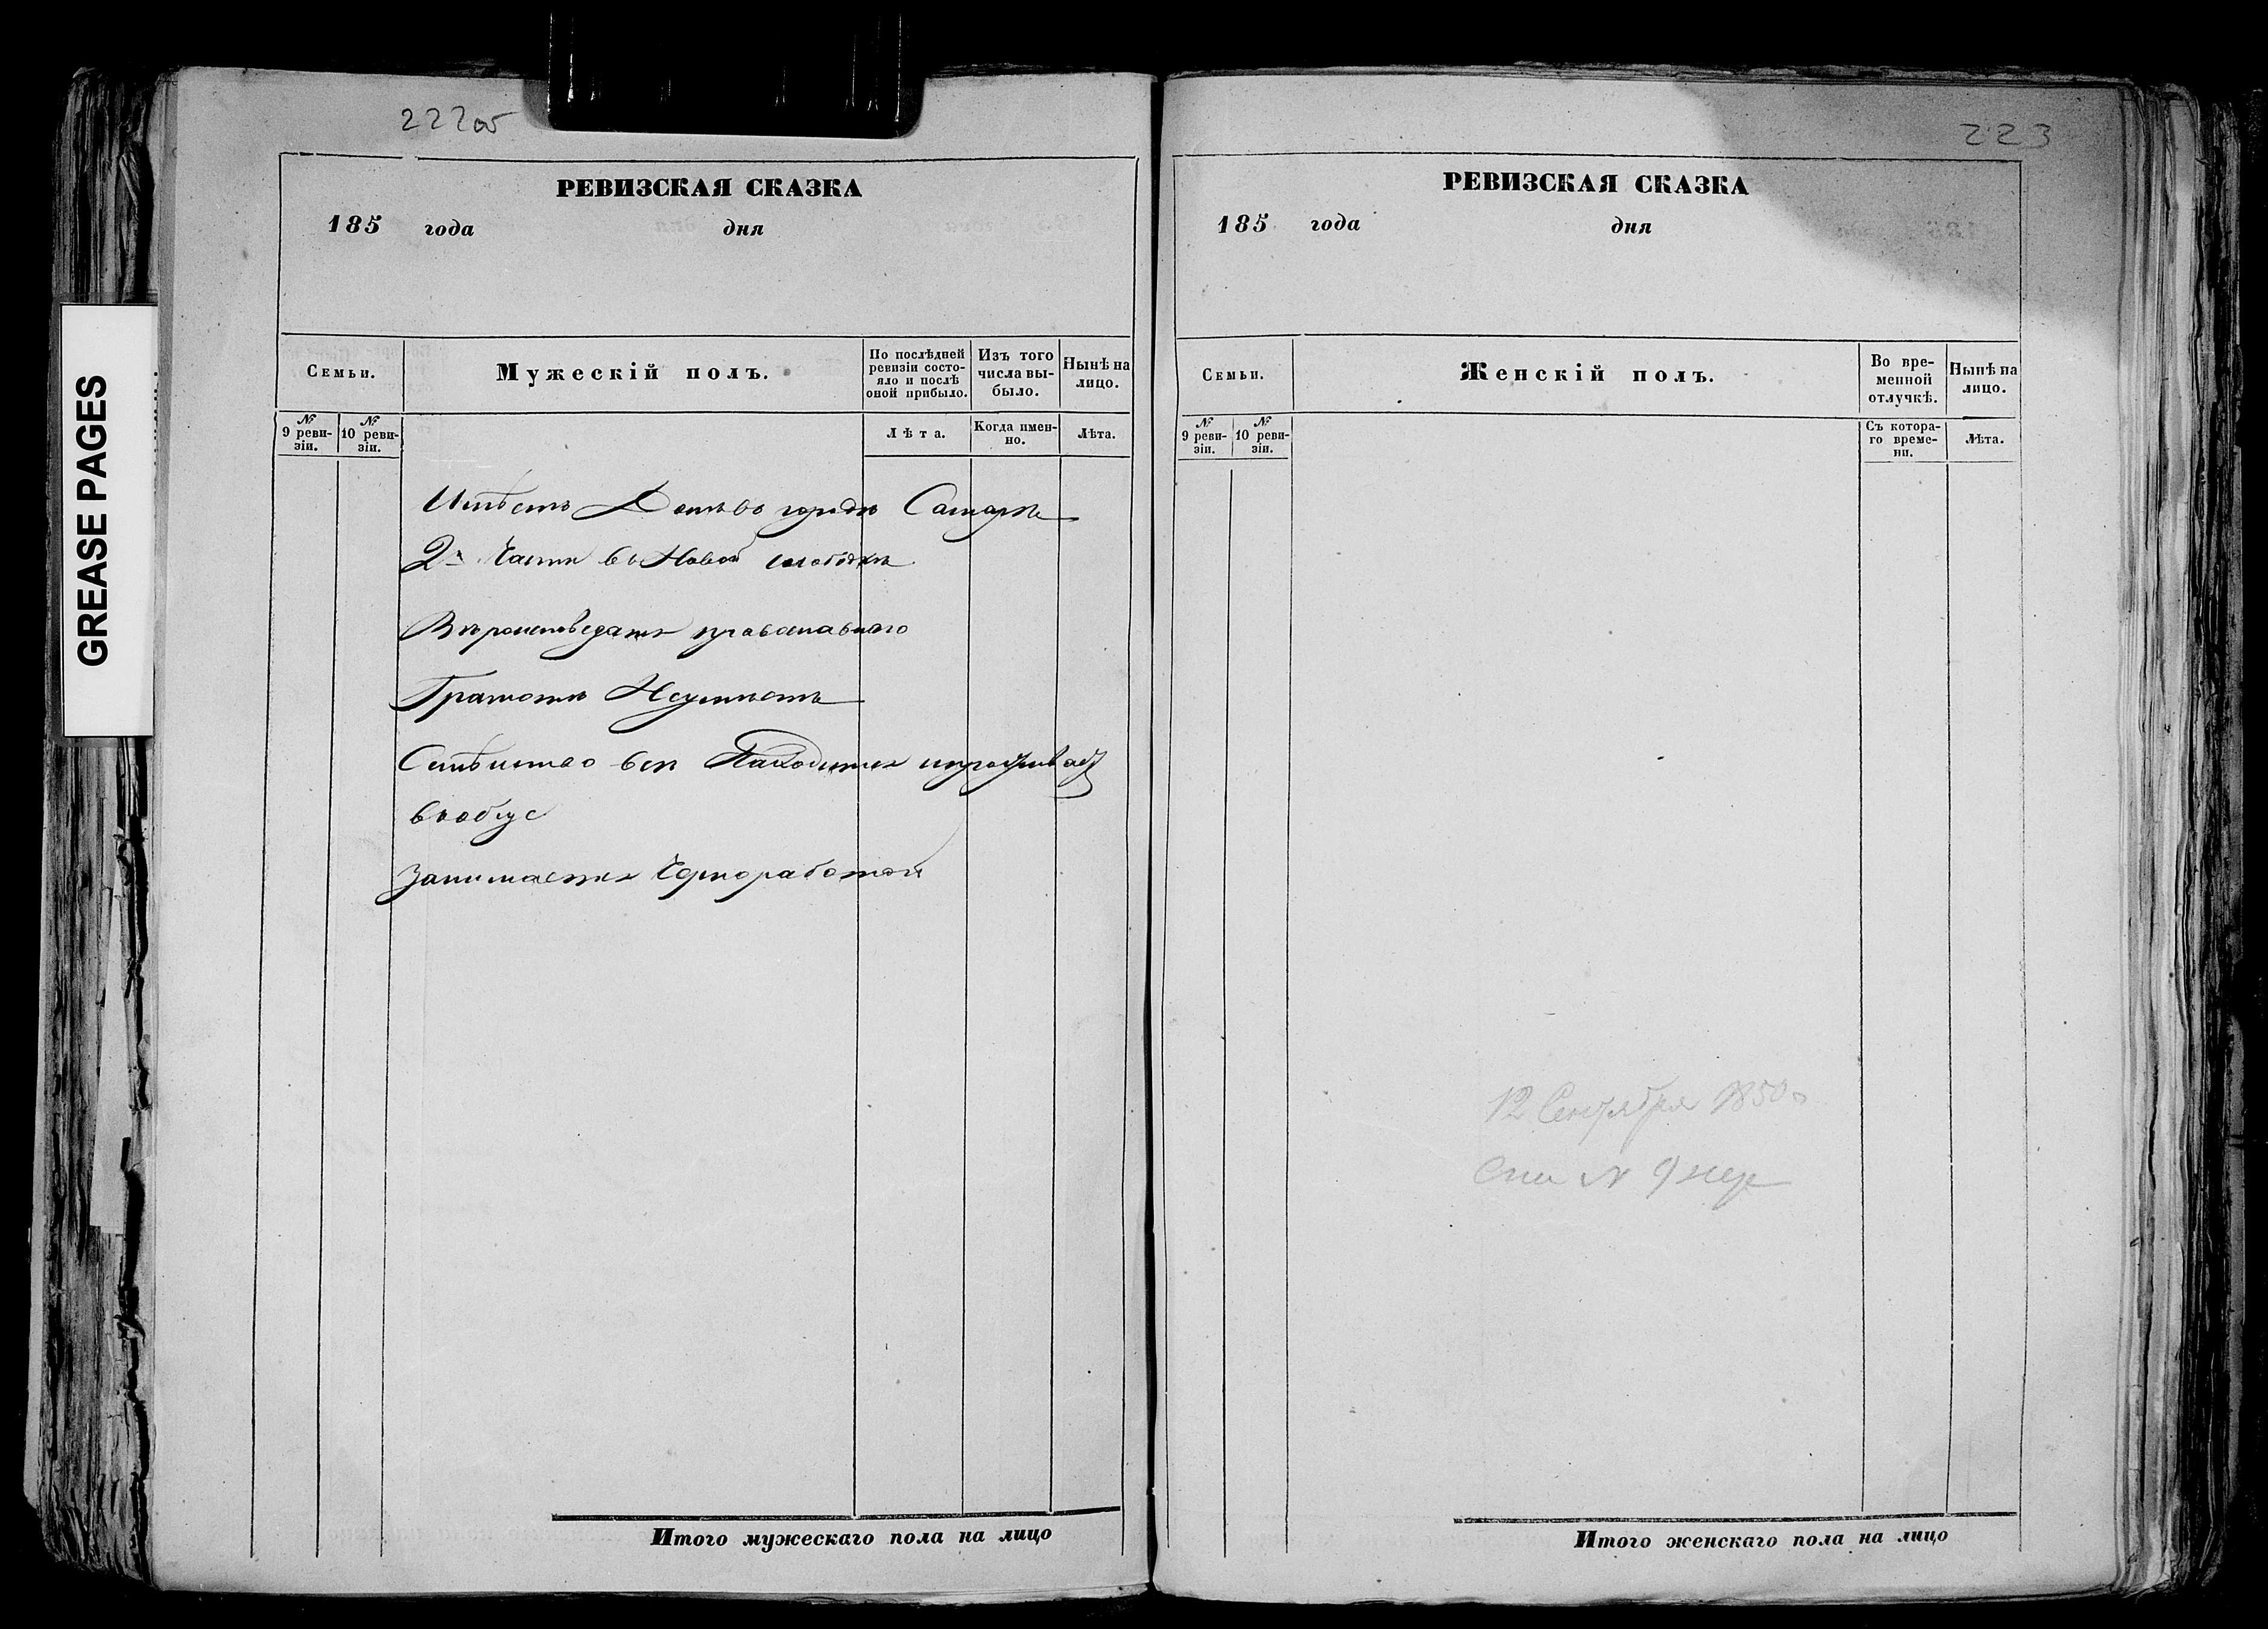 222об
РЕВИЗСКАЯ СКАЗКА
185 года дня
Семьи.
Мужескій полъ.
По послѣдней ревизіи состо-
яло и послѣ
оной прибыло.
Изъ того
числа вы-
было.
Нынѣ на
лицо.
№
9 реви-
зіи.
№
10 реви-
зіи.
Лѣта.
Когда имен-
но.
Лѣта.
Имѣетъ Домъ въ городѣ Самарѣ
2й Части въ Новой слободкѣ
Вѣроисповеданія православнаго
Грамотѣ Неумѣетъ
Семѣйство все Находится
вкобус
Занимается Черноработой
Итого мужескаго пола на лицо
GREASE PAGES
223
РЕВИЗСКАЯ СКАЗКА
185 года дня
Семьи.
Женскій полъ.
Во вре-
менной
отлучкѣ.
Нынѣ на
лицо.
№
9 реви-
зіи.
№
10 реви-
зіи.
Съ котора-
го време-
ни.
Лѣта.
12 Сентября 1850
№ 9
Итого женскаго пола на лицо